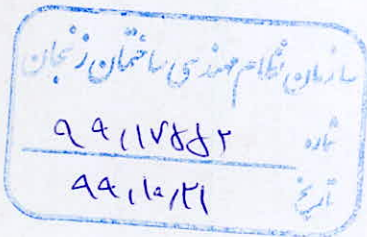 سازمان نظام مهندسی ساختمان زنجان
شماره ۹۹/۱۷۵۵۲
تاریخ ۹۹/۱۰/۲۱